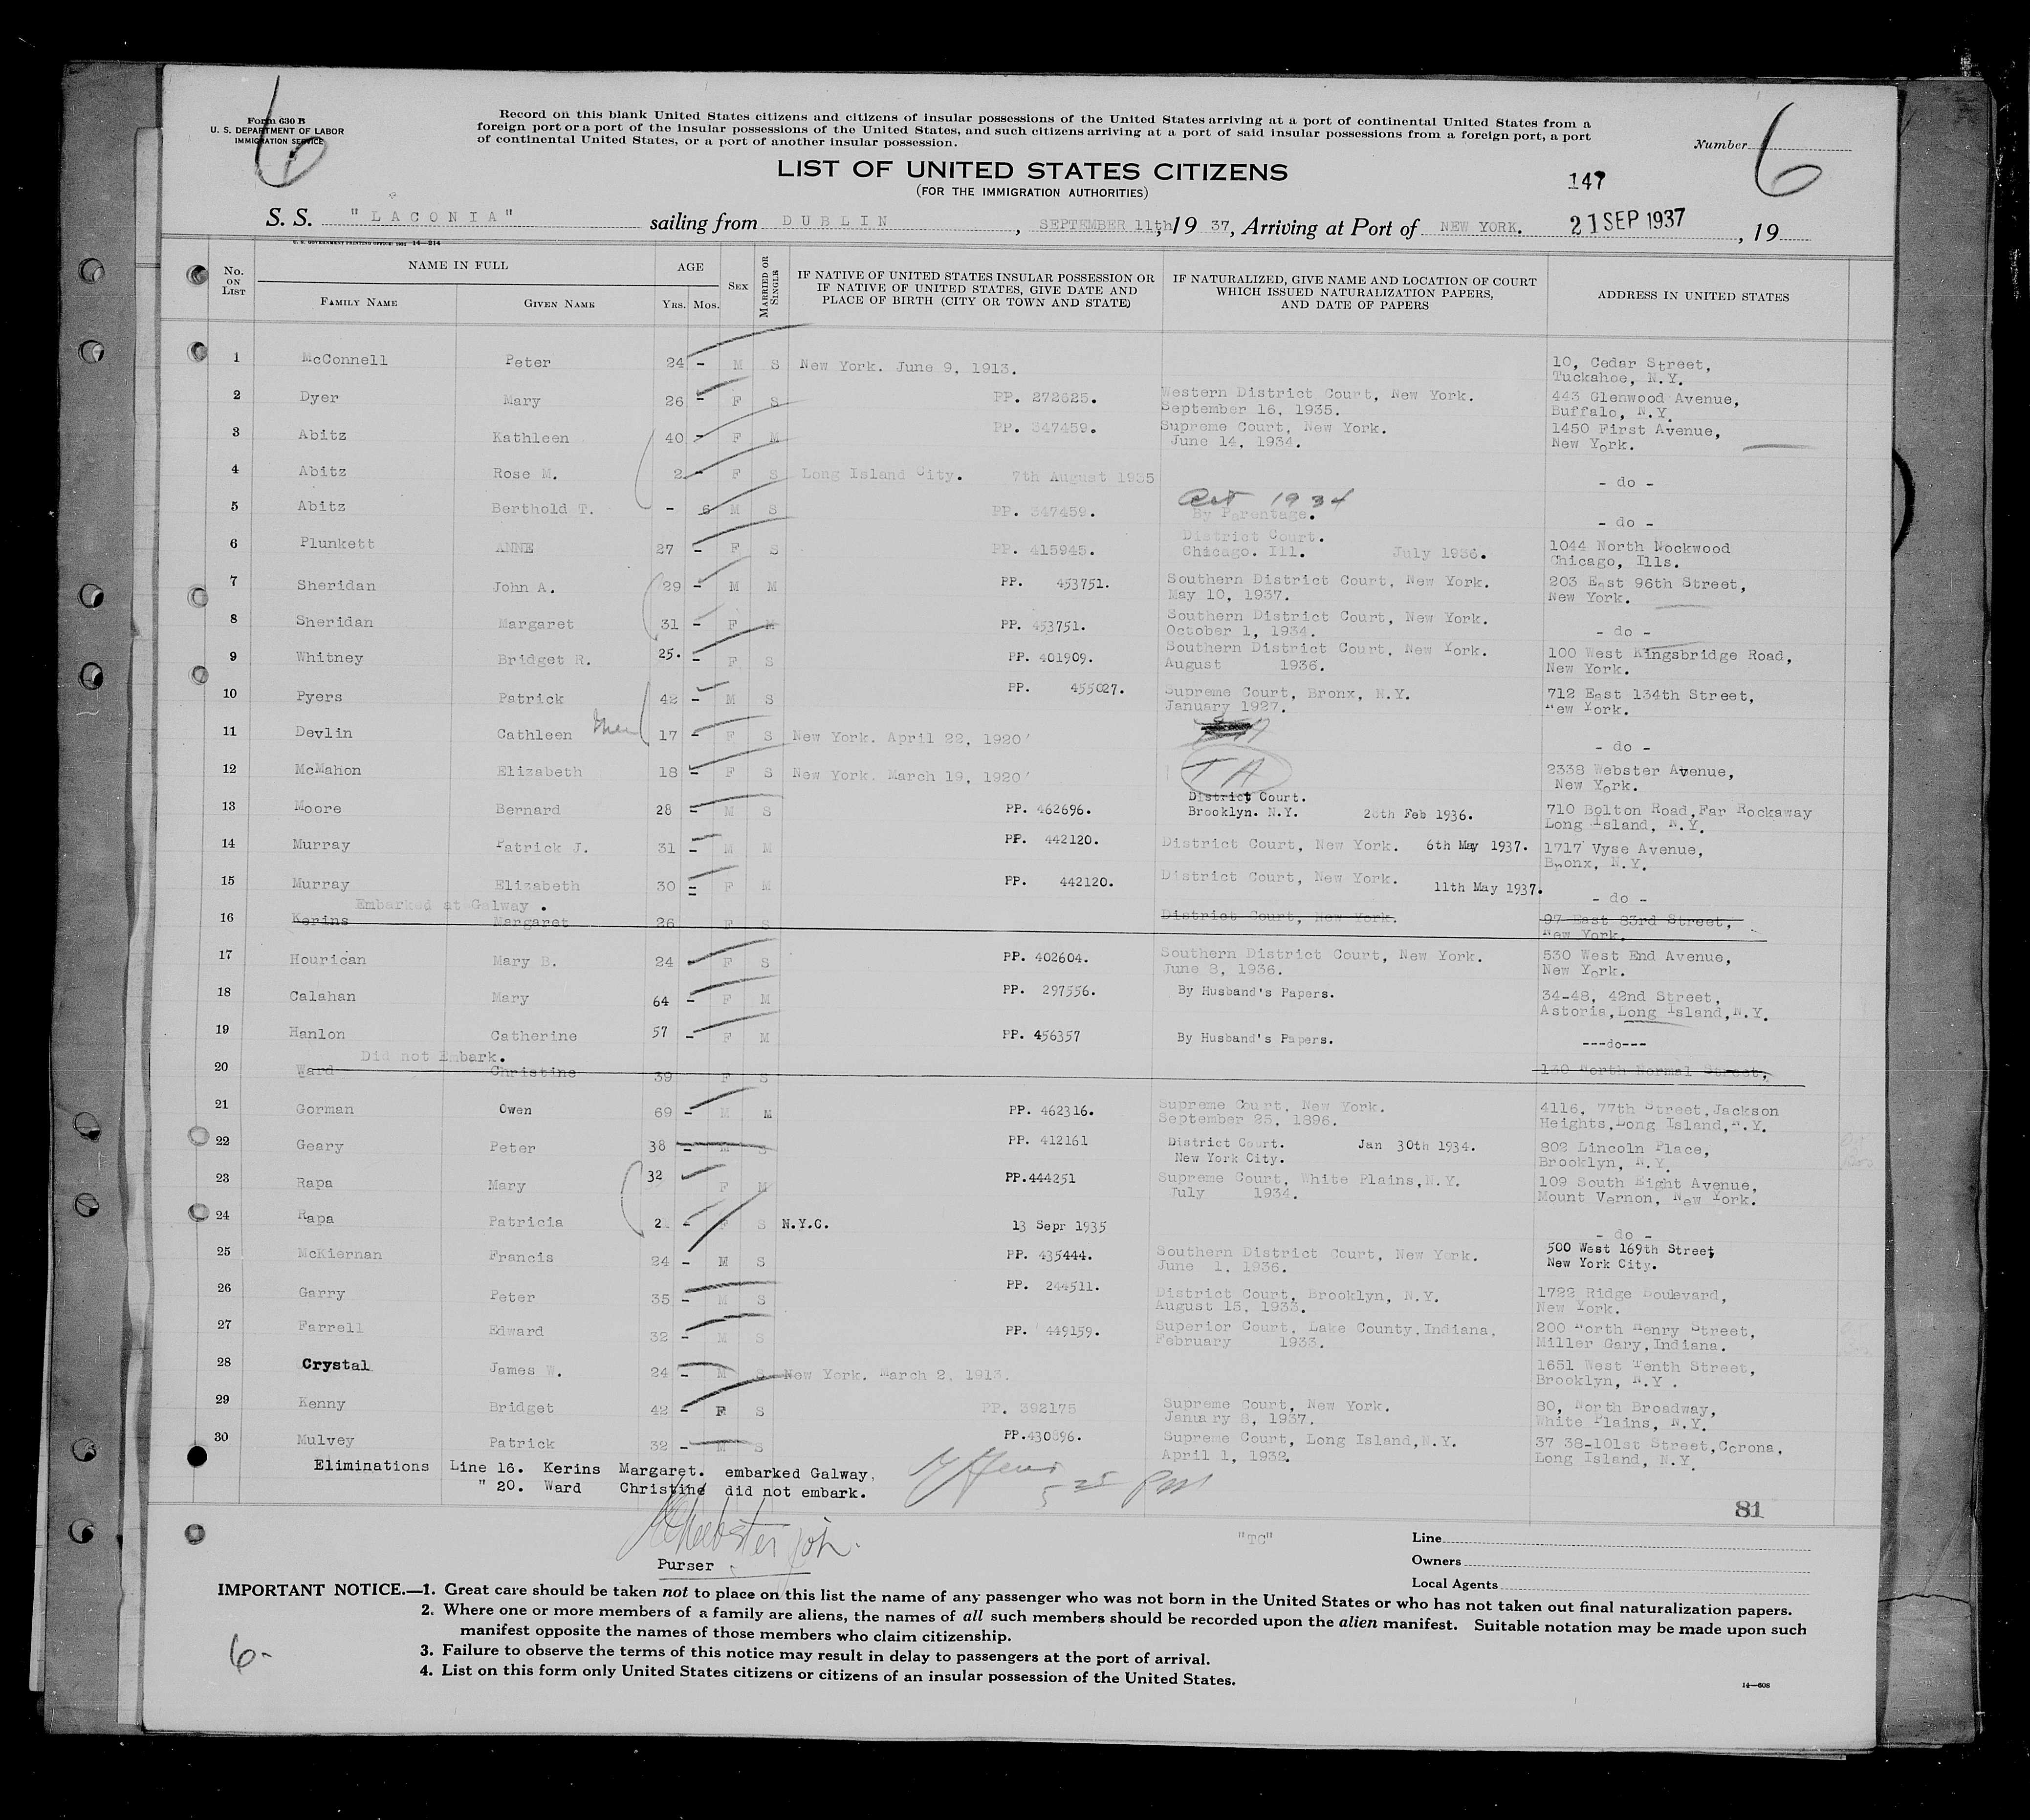 6
Form 630 B
U. S. DEPARTMENT OF LABOR
IMMIGRATION SERVICE
Record on this blank United States citizens and citizens of insular possessions of the United States arriving at a port of continental United States from a
foreign port or a port of the insular possessions of the United States, and such citizens arriving at a port of said insular possessions from a foreign port, a port
of continental United States, or a port of another insular possession.
Number 6
LIST OF UNITED STATES CITIZENS
(FOR THE IMMIGRATION AUTHORITIES)
147
S. S. "LACONIA" sailing from DUBLIN, SEPTEMBER 11th, 19 37, Arriving at Port of NEW YORK. 21 SEP 1937, 19
U. S. GOVERNMENT PRINTING OFFICE: 1931 14—214
No. ON LIST
NAME IN FULL
FAMILY NAME GIVEN NAME
AGE
YRS. MOS.
SEX
MARRIED OR SINGLE
IF NATIVE OF UNITED STATES INSULAR POSSESSION OR
IF NATIVE OF UNITED STATES, GIVE DATE AND
PLACE OF BIRTH (CITY OR TOWN AND STATE)
IF NATURALIZED, GIVE NAME AND LOCATION OF COURT
WHICH ISSUED NATURALIZATION PAPERS,
AND DATE OF PAPERS
ADDRESS IN UNITED STATES
1 McConnell Peter 24 - M S New York. June 9, 1913. 10, Cedar Street,
Tuckahoe, N.Y.
2 Dyer Mary 26 - F S PP. 272625. Western District Court, New York. 443 Glenwood Avenue,
September 16, 1935. Buffalo, N.Y.
3 Abitz Kathleen 40 - F M PP. 347459. Supreme Court, New York. 1450 First Avenue,
June 14, 1934. New York.
4 Abitz Rose M. 2 - F S Long Island City. 7th August 1935 - do -
Act 1934
5 Abitz Berthold T. - 6 M S PP. 347459. By Parentage. - do -
6 Plunkett ANNE 27 - F S PP. 415945. District Court. 1044 North Nockwood
Chicago. Ill. July 1936. Chicago, Ills.
7 Sheridan John A. 29 - M M PP. 453751. Southern District Court, New York. 203 East 96th Street,
May 10, 1937. New York.
8 Sheridan Margaret 31 - F M PP. 453751. Southern District Court, New York.
October 1, 1934. - do -
9 Whitney Bridget R. 25. - F S PP. 401909. Southern District Court, New York. 100 West Kingsbridge Road,
August 1936. New York.
10 Pyers Patrick 42 - M S PP. 455027. Supreme Court, Bronx, N.Y. 712 East 134th Street,
January 1927. New York.
11 Devlin Cathleen 17 - F S New York. April 22, 1920 - do -
12 McMahon Elizabeth 18 - F S New York. March 19, 1920 TA 2338 Webster Avenue,
New York.
13 Moore Bernard 28 - M S PP. 462696. District Court.
Brooklyn. N.Y. Feb 1936. 710 Bolton Road, Far Rockaway
Long Island, N.Y.
14 Murray Patrick J. 31 - M M PP. 442120. District Court, New York. 6th May 1937. 1717 Vyse Avenue,
Bronx, N.Y.
15 Murray Elizabeth 30 - F M PP. 442120. District Court, New York. 11th May 1937. - do -
Embarked at Galway.
16 Kerins Margaret 26 F S District Court, New York. 97 East 83rd Street,
New York.
17 Hourican Mary B. 24 - F S PP. 402604. Southern District Court, New York. 530 West End Avenue,
June 8, 1936. New York.
18 Calahan Mary 64 - F M PP. 297556. By Husband's Papers. 34-48, 42nd Street,
Astoria, Long Island, N.Y.
19 Hanlon Catherine 57 - F M PP. 456357 By Husband's Papers. ---do---
Did not Embark.
20 Ward Christine 39 F S 130 North Normal Street,
21 Gorman Owen 69 - M M PP. 462316. Supreme Court, New York. 4116, 77th Street, Jackson
September 25, 1896. Heights, Long Island, N.Y.
22 Geary Peter 38 - M S PP. 412161 District Court. Jan 30th 1934. 802 Lincoln Place,
New York City. Brooklyn, N.Y.
23 Rapa Mary 32 F M PP.444251 Supreme Court, White Plains, N.Y. 109 South Eight Avenue,
July 1934. Mount Vernon, New York.
24 Rapa Patricia 2 - F S N.Y.C. 13 Sepr 1935 - do -
25 McKiernan Francis 24 - M S PP. 435444. Southern District Court, New York. 500 West 169th Street,
June 1, 1936. New York City.
26 Garry Peter 35 - M S PP. 244511. District Court, Brooklyn, N.Y. 1722 Ridge Boulevard,
August 15, 1933. New York.
27 Farrell Edward 32 - M S PP. 449159. Superior Court, Lake County, Indiana, 200 North Henry Street,
February 1933. Miller Gary, Indiana.
28 Crystal James W. 24 - M S New York. March 2, 1913. 1651 West Tenth Street,
Brooklyn, N.Y.
29 Kenny Bridget 42 - F S PP. 392175 Supreme Court, New York. 80, North Broadway,
January 8, 1937. White Plains, N.Y.
30 Mulvey Patrick 32 - M S PP.430896. Supreme Court, Long Island, N.Y. 37 38-101st Street, Corona,
April 1, 1932. Long Island, N.Y.
Eliminations Line 16. Kerins Margaret. embarked Galway,
" 20. Ward Christine did not embark.
5 25 PM
81
"TC"
Purser
Line
Owners
Local Agents
IMPORTANT NOTICE.—1. Great care should be taken not to place on this list the name of any passenger who was not born in the United States or who has not taken out final naturalization papers.
2. Where one or more members of a family are aliens, the names of all such members should be recorded upon the alien manifest. Suitable notation may be made upon such
manifest opposite the names of those members who claim citizenship.
3. Failure to observe the terms of this notice may result in delay to passengers at the port of arrival.
4. List on this form only United States citizens or citizens of an insular possession of the United States.
6-
14—608